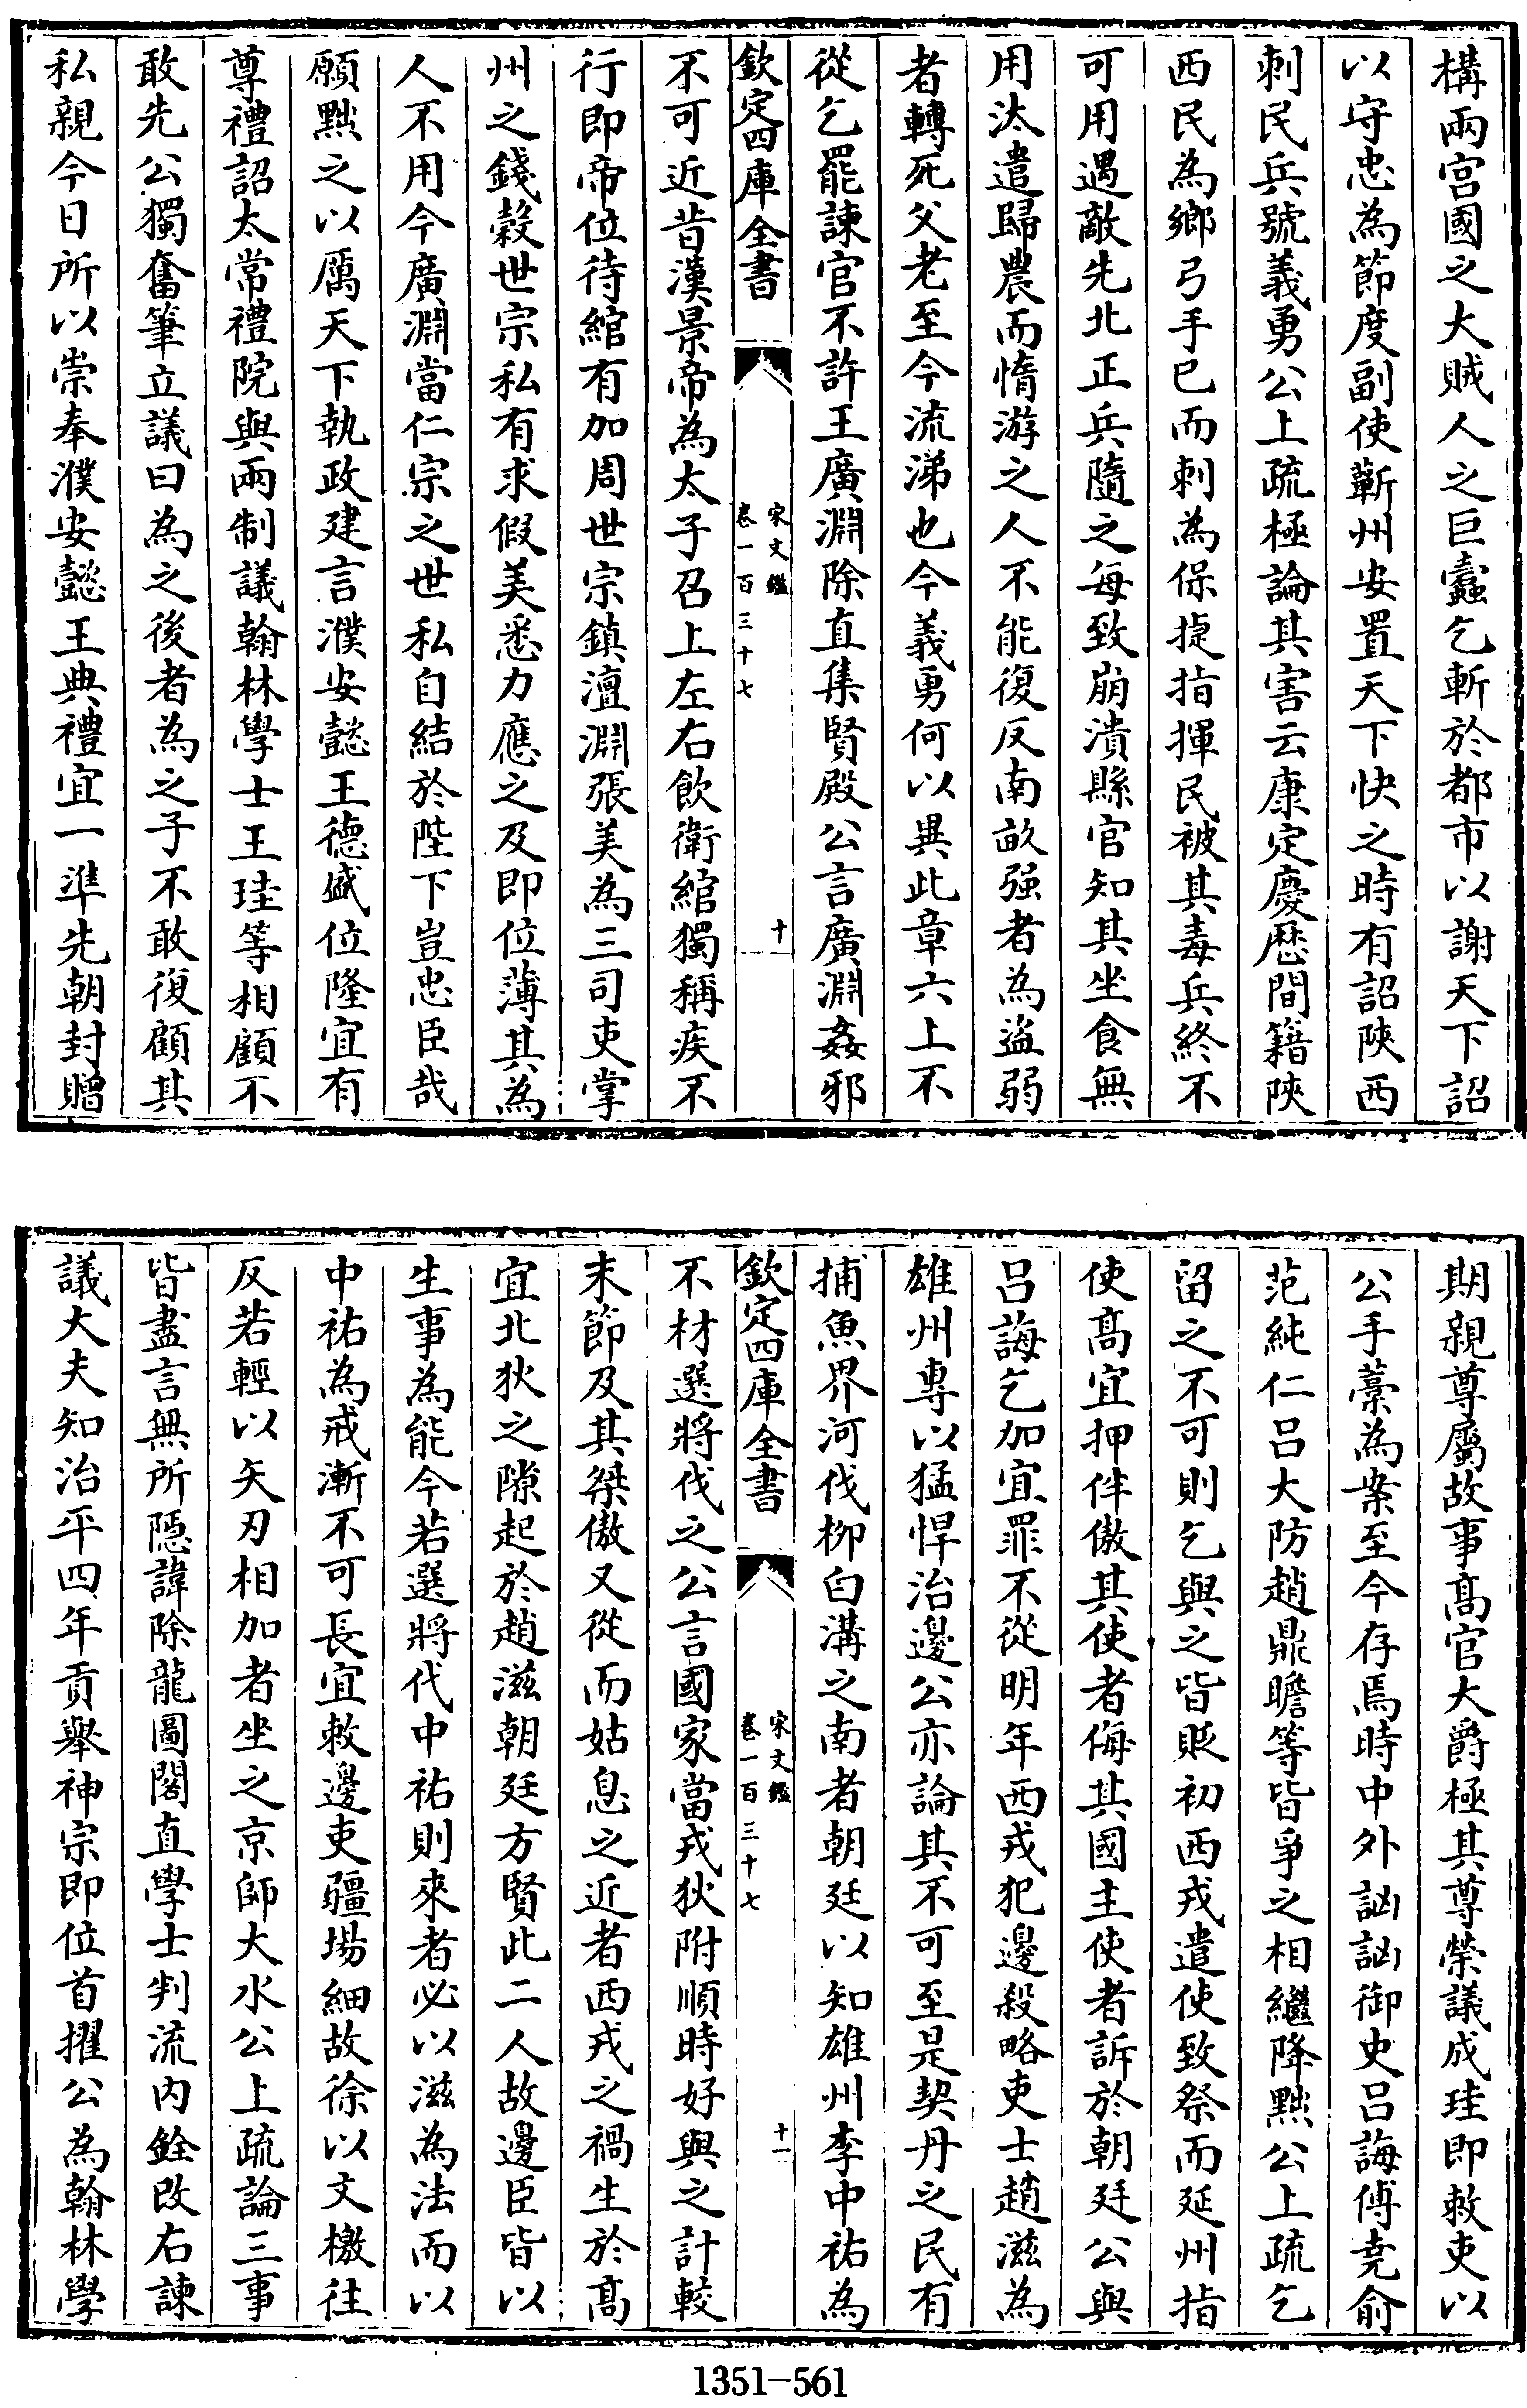 構兩宫國之大賊人之巨蠧乞斬於都市以謝天下詔
以守忠為節度副使蘄州安置天下快之時有詔陜西
刺民兵號義勇公上疏極論其害云康定慶厯間籍陜
西民為鄉弓手已而刺為保捷指揮民被其毒兵終不
可用遇敵先北正兵隨之每致崩潰縣官知其坐食無
用汰遣歸農而惰游之人不能復反南畝强者為盗弱
者轉死父老至今流涕也今義勇何以異此章六上不
從乞罷諫官不許王廣淵除直集賢殿公言廣淵姦邪
欽定四庫全書
宋文鑑
卷一百三十七
十
不可近昔漢景帝為太子召上左右飲衛綰獨稱疾不
行即帝位待綰有加周世宗鎮澶淵張美為三司吏掌
州之錢穀世宗私有求假美悉力應之及即位薄其為
人不用今廣淵當仁宗之世私自結於陛下豈忠臣哉
願黜之以厲天下執政建言濮安懿王德盛位隆宜有
尊禮詔太常禮院與兩制議翰林學士王珪等相顧不
敢先公獨奮筆立議曰為之後者為之子不敢復顧其
私親今日所以崇奉濮安懿王典禮宜一準先朝封贈
期親尊屬故事髙官大爵極其尊榮議成珪即敕吏以
公手藁為案至今存焉時中外訩訩御史吕誨傅堯俞
范純仁吕大防趙鼎瞻等皆爭之相繼降黜公上疏乞
留之不可則乞與之皆貶初西戎遣使致祭而延州指
使髙宜押伴傲其使者侮其國主使者訴於朝廷公與
吕誨乞加宜罪不從明年西戎犯邊殺略吏士趙滋為
雄州專以猛悍治邊公亦論其不可至是契丹之民有
捕魚界河伐柳白溝之南者朝廷以知雄州李中祐為
欽定四庫全書
宋文鑑
卷一百三十七
十一
不材選將伐之公言國家當戎狄附順時好與之計較
末節及其桀傲又從而姑息之近者西戎之禍生於髙
宜北狄之隙起於趙滋朝廷方賢此二人故邊臣皆以
生事為能今若選將代中祐則來者必以滋為法而以
中祐為戒漸不可長宜敕邊吏疆場細故徐以文檄往
反若輕以矢刃相加者坐之京師大水公上疏論三事
皆盡言無所隱諱除龍圖閣直學士判流内銓改右諫
議大夫知治平四年貢舉神宗即位首擢公為翰林學
1351-561